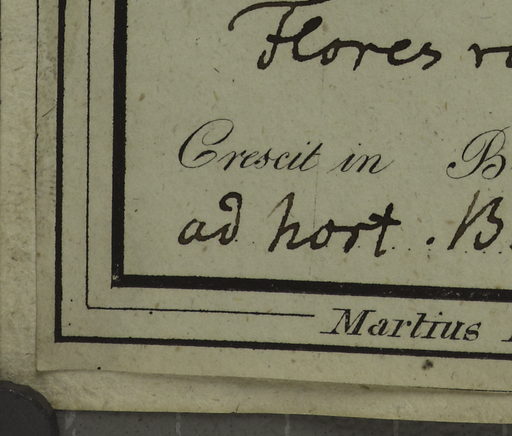 Flores
Crescit in B
ad hort. B.
Martius